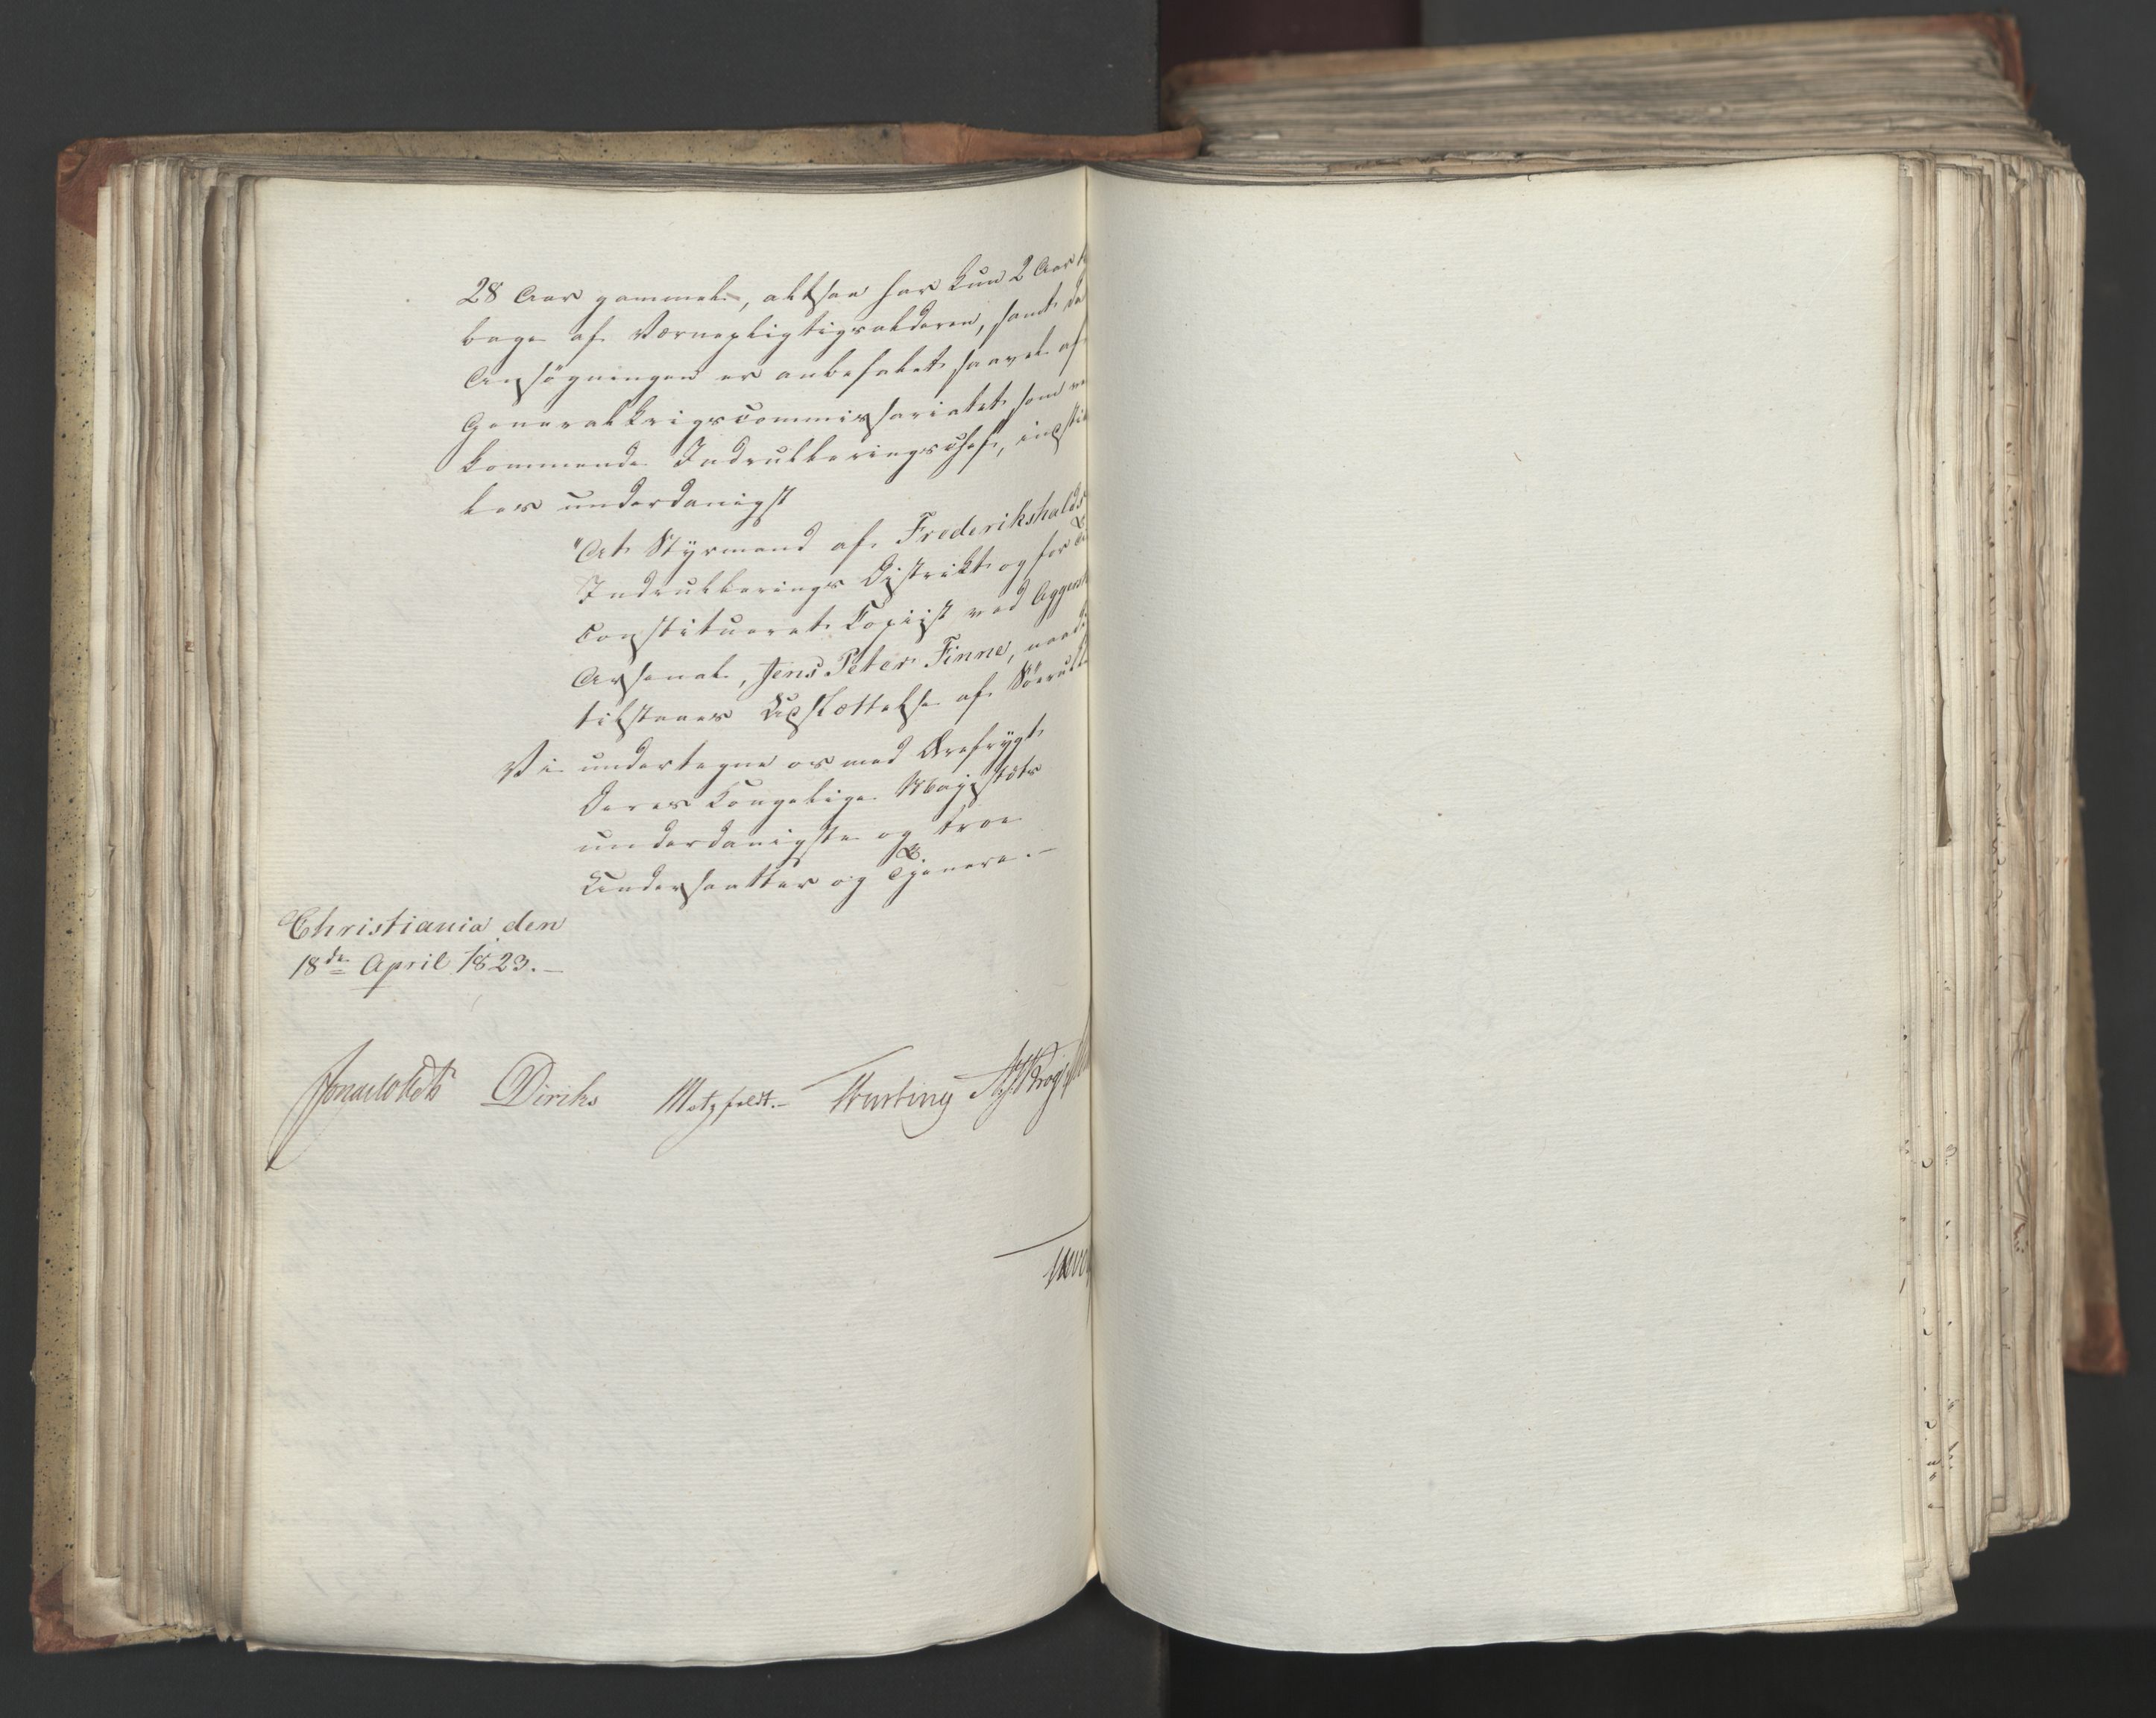 28 Aar gammel, altsaa har kun 2 Aar t
bage af Værnepligtigsalderen, samt da
Ansøgningen er anbefalet saavel af
Generalkrigscommissariatet som ved
kommende Indrulleringschef, indstil
les underdanigst
"At Styrmand af Frederikshalds
Indrullerings Distrikt og for
constitueret Copiist ved Aggers
Arsenal, Jens Peter Finne, naadi
tilstaaes Udslættelse af Söerull
Vi undertegne os med Ærefrygt
Deres Kongelige Majestæts
underdanigste og troe
Undersaatter og Tjenere.-
Christiania den
18de April 1823.-
Sommerhielm Diriks Motzfeldt.- Treschow Krogh